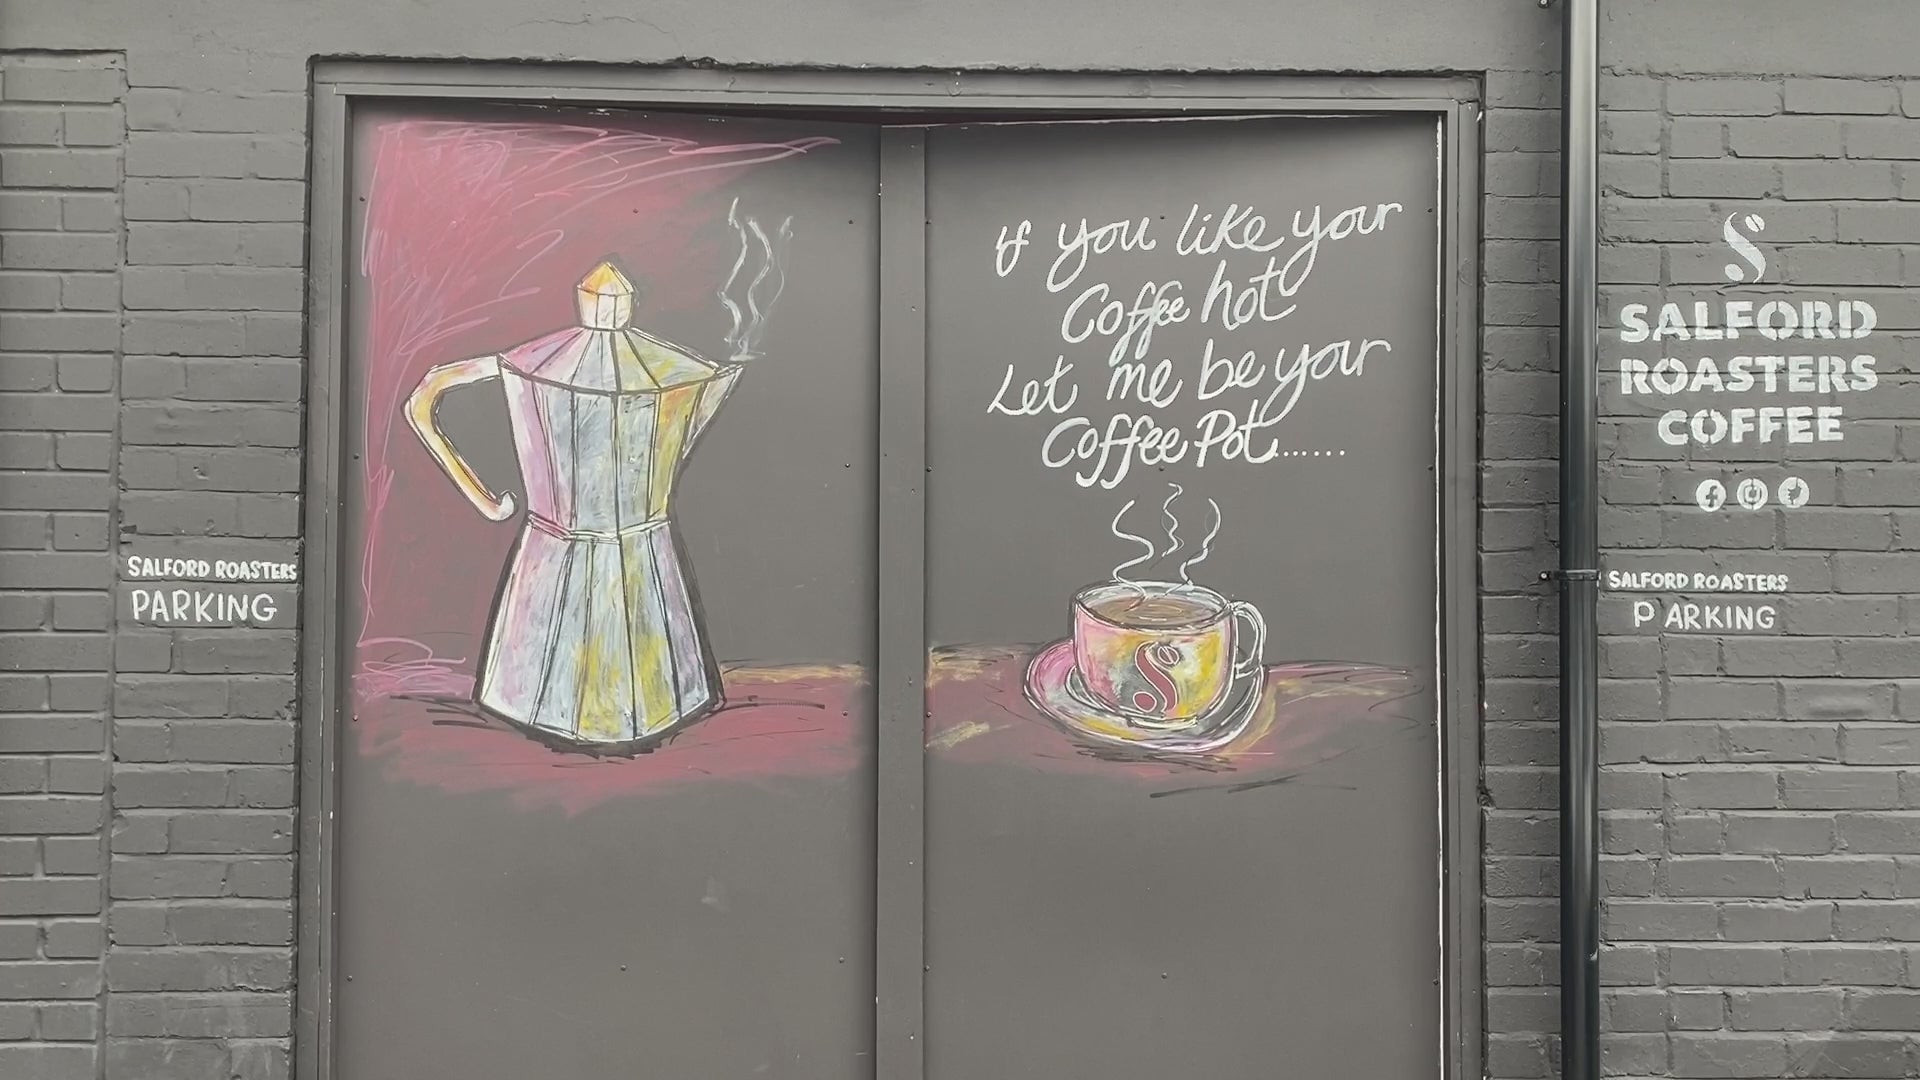 If you like your
Coffee hot
Let me be your
Coffee Pot......
SALFORD ROASTERS
PARKING
SALFORD
ROASTERS
COFFEE
SALFORD ROASTERS
P ARKING